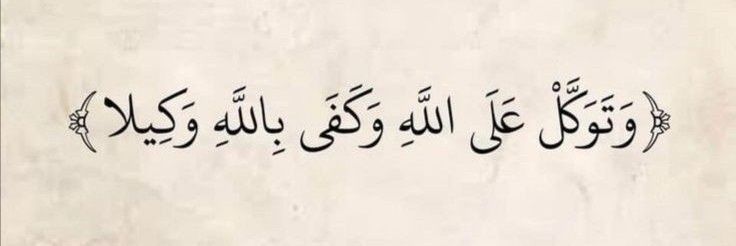 ﴿وَتَوَكَّلْ عَلَى اللَّهِ وَكَفَى بِاللَّهِ وَكِيلا﴾